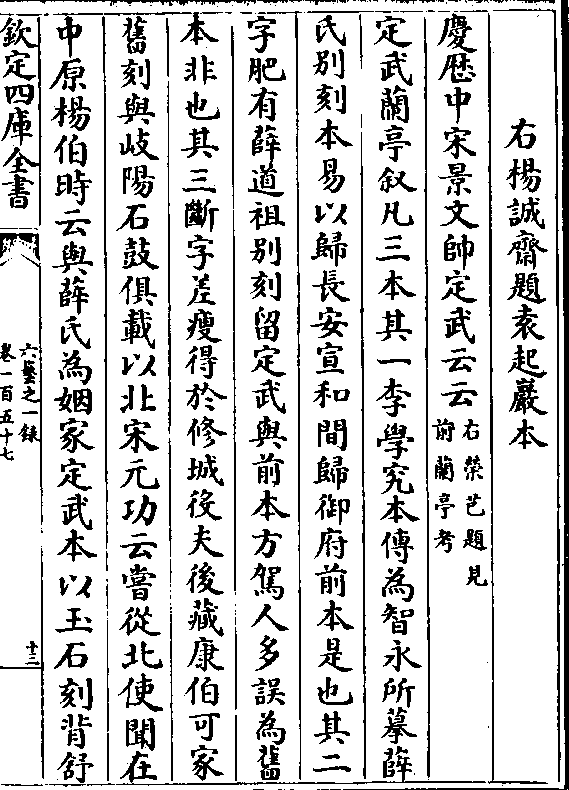 右楊誠齋題袁起巖本
慶歴中宋景文帥定武云云右榮芑題見前蘭亭考
定武蘭亭叙凡三本其一李學究本傳為智永所摹薛
氏別刻本易以歸長安宣和間歸御府前本是也其二
字肥有薛道祖別刻留定武與前本方駕人多誤為舊
本非也其三斷字差瘦得於修城役夫後藏康伯可家
舊刻與岐陽石鼓俱載以北宋元功云嘗從北使聞在
中原楊伯時云與薛氏為姻家定武本以玉石刻背舒
欽定四庫全書
六藝之一錄
卷一百五十七
十三